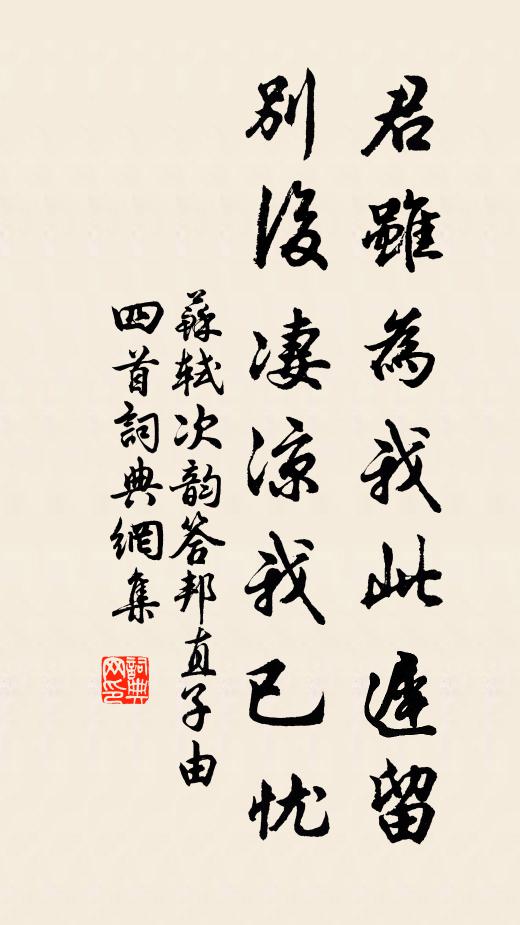 君雖為我此遲留
別後凄涼我已忧
蘇軾次韵答邦直子由
四首詞典網集
詞典网印